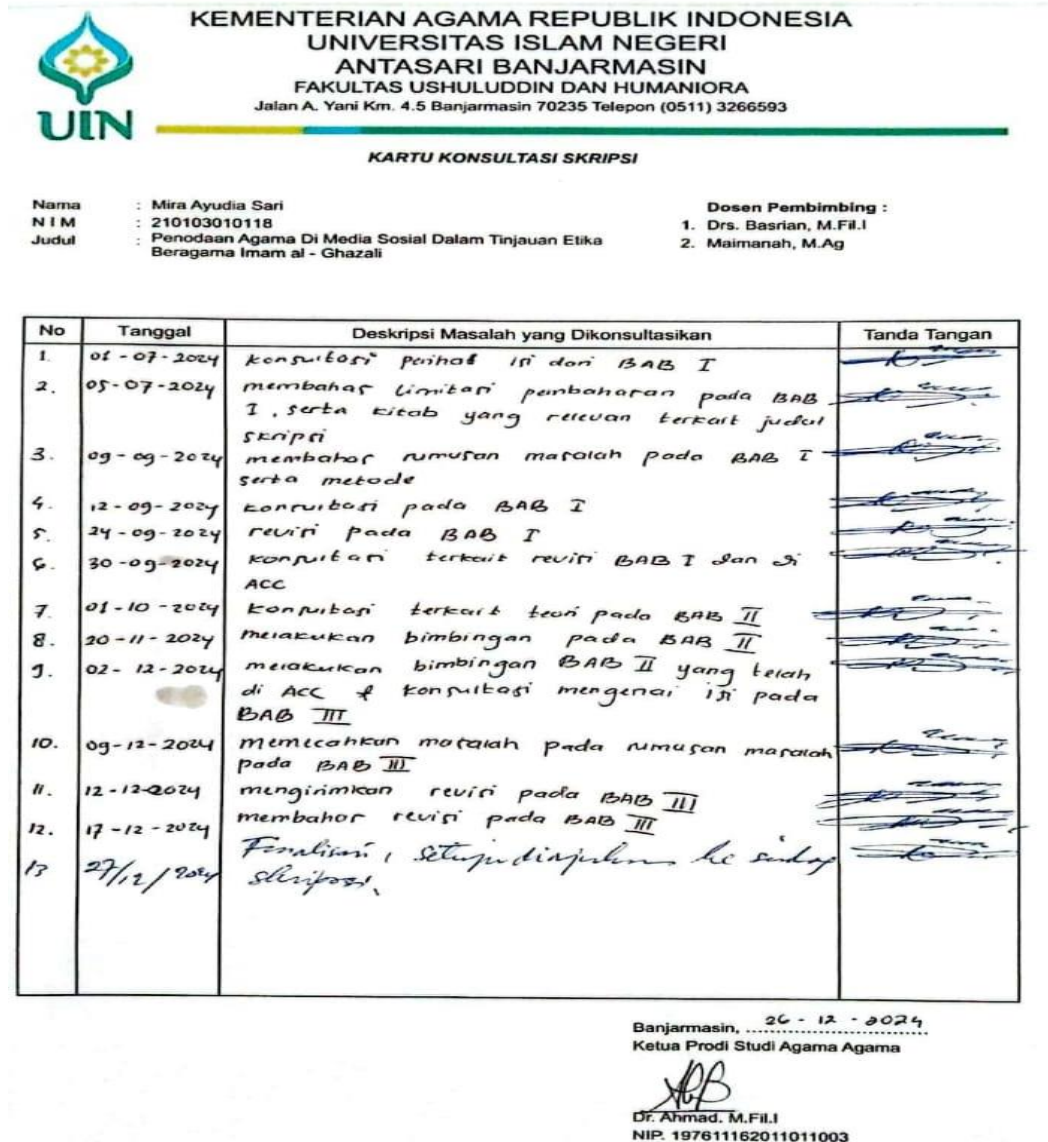 KEMENTERIAN AGAMA REPUBLIK INDONESIA
UNIVERSITAS ISLAM NEGERI
ANTASARI BANJARMASIN
FAKULTAS USHULUDDIN DAN HUMANIORA
Jalan A. Yani Km. 4.5 Banjarmasin 70235 Telepon (0511) 3266593
UIN
KARTU KONSULTASI SKRIPSI
Nama : Mira Ayudia Sari
N I M : 210103010118
Judul : Penodaan Agama Di Media Sosial Dalam Tinjauan Etika
Beragama Imam al - Ghazali
Dosen Pembimbing :
1. Drs. Basrian, M.Fil.I
2. Maimanah, M.Ag
No Tanggal Deskripsi Masalah yang Dikonsultasikan Tanda Tangan
1. 01-07-2024 konsultasi perihal isi dari BAB I
2. 05-07-2024 membahas limitasi pembahasan pada BAB
I, serta kitab yang relevan terkait judul
skripsi
3. 09-09-2024 membahas rumusan masalah pada BAB I
serta metode
4. 12-09-2024 konsultasi pada BAB I
5. 24-09-2024 revisi pada BAB I
6. 30-09-2024 konsultasi terkait revisi BAB I dan di
ACC
7. 01-10-2024 konsultasi terkait teori pada BAB II
8. 20-11-2024 melakukan bimbingan pada BAB II
9. 02-12-2024 melakukan bimbingan BAB II yang telah
di ACC & konsultasi mengenai isi pada
BAB III
10. 09-12-2024 memecahkan masalah pada rumusan masalah
pada BAB III
11. 12-12-2024 mengirimkan revisi pada BAB III
12. 17-12-2024 membahas revisi pada BAB III
13 27/12/2024 Finalisasi, setuju diajukan ke sidang
skripsi.
Banjarmasin, 26-12-2024
Ketua Prodi Studi Agama Agama
Dr. Ahmad. M.Fil.I
NIP. 197611162011011003